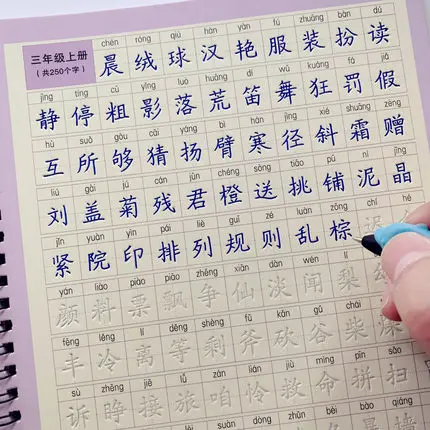 三年级上册
（共250个字）
chén róng qiú hàn yàn fú zhuāng bàn dú
晨 绒 球 汉 艳 服 装 扮 读
jìng tíng cū yǐng luò huāng dí wǔ kuáng fá jià
静 停 粗 影 落 荒 笛 舞 狂 罚 假
hù suǒ gòu cāi yáng bì hán jìng xié shuāng zèng
互 所 够 猜 扬 臂 寒 径 斜 霜 赠
liú gài jú cán jūn chéng sòng tiāo pù ní jīng
刘 盖 菊 残 君 橙 送 挑 铺 泥 晶
jǐn yuàn yìn pái liè guī zé luàn zōng chí hé
紧 院 印 排 列 规 则 乱 棕 迟
yán liào piào piāo zhēng xiān dàn wén lí
颜 料 票 飘 争 仙 淡 闻 梨
fēng lěng lí děng shèng fǔ kǎn gǔ chái
丰 冷 离 等 剩 斧 砍 谷 柴
sù zhēng jiē lǚ zán lián jiù mìng pīn sǎo
诉 睁 接 旅 咱 怜 救 命 拼 扫